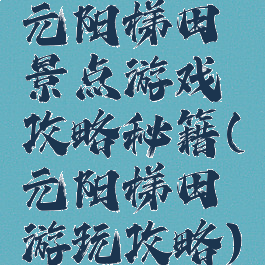 元阳梯田
景点游戏
攻略秘籍(
元阳梯田
游玩攻略)